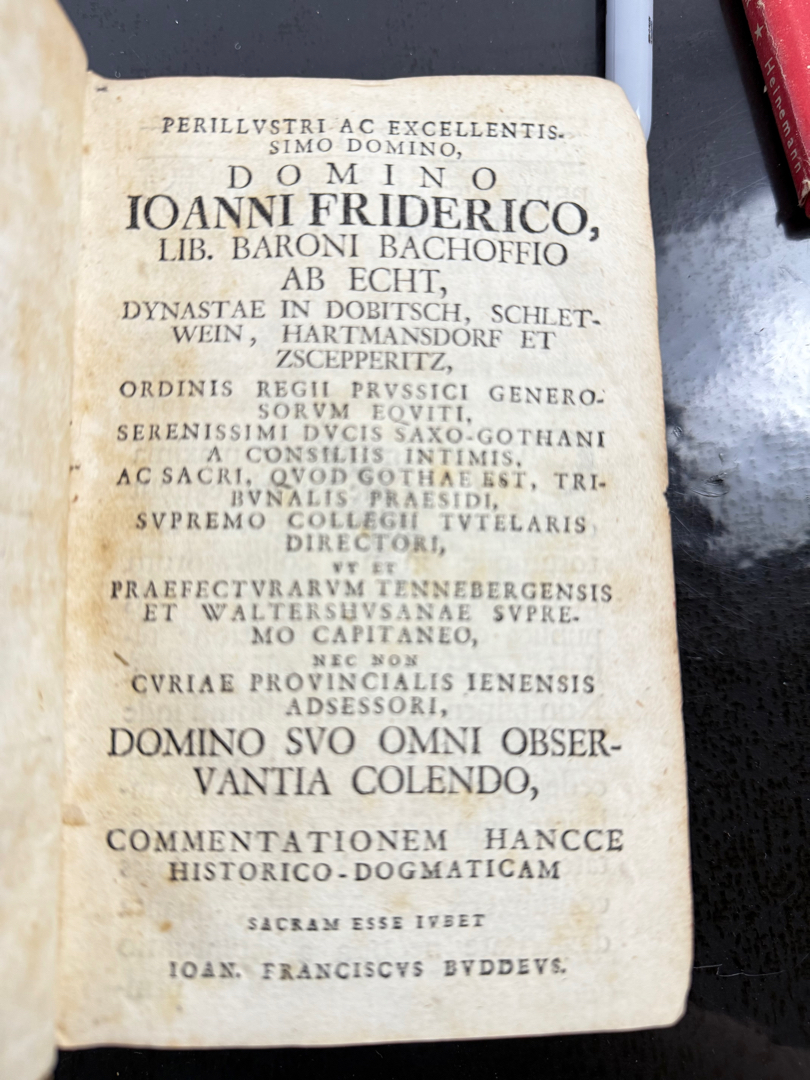 PERILLVSTRI AC EXCELLENTIS-
SIMO DOMINO,
DOMINO
IOANNI FRIDERICO,
LIB. BARONI BACHOFFIO
AB ECHT,
DYNASTAE IN DOBITSCH, SCHLET-
WEIN, HARTMANSDORF ET
ZSCEPPERITZ,
ORDINIS REGII PRVSSICI GENERO-
SORVM EQVITI,
SERENISSIMI DVCIS SAXO-GOTHANI
A CONSILIIS INTIMIS,
AC SACRI, QVOD GOTHAE EST, TRI-
BVNALIS PRAESIDI,
SVPREMO COLLEGII TVTELARIS
DIRECTORI,
VT ET
PRAEFECTVRARVM TENNEBERGENSIS
ET WALTERSHVSANAE SVPRE-
MO CAPITANEO,
NEC NON
CVRIAE PROVINCIALIS IENENSIS
ADSESSORI,
DOMINO SVO OMNI OBSER-
VANTIA COLENDO,
COMMENTATIONEM HANCCE
HISTORICO-DOGMATICAM
SACRAM ESSE IVBET
IOAN. FRANCISCVS BVDDEVS.
Heinemann